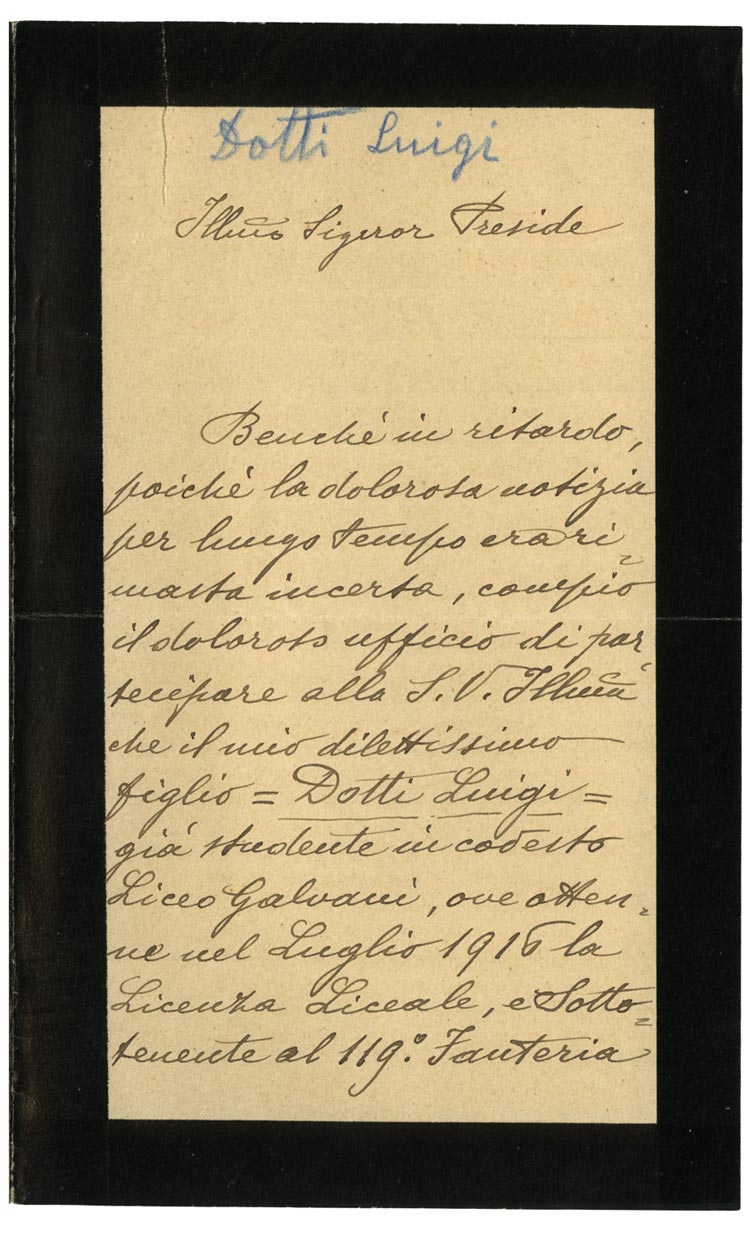 Dotti Luigi
Illmo Signor Preside
Benché in ritardo,
poiché la dolorosa notizia
per lungo tempo era ri=
masta incerta, compio
il doloroso ufficio di par=
tecipare alla S. V. Illma
che il mio dilettissimo
figlio = Dotti Luigi =
già studente in codesto
Liceo Galvani, ove otten=
ne nel Luglio 1916 la
Licenza Liceale, e Sotto=
tenente al 119º. Fanteria